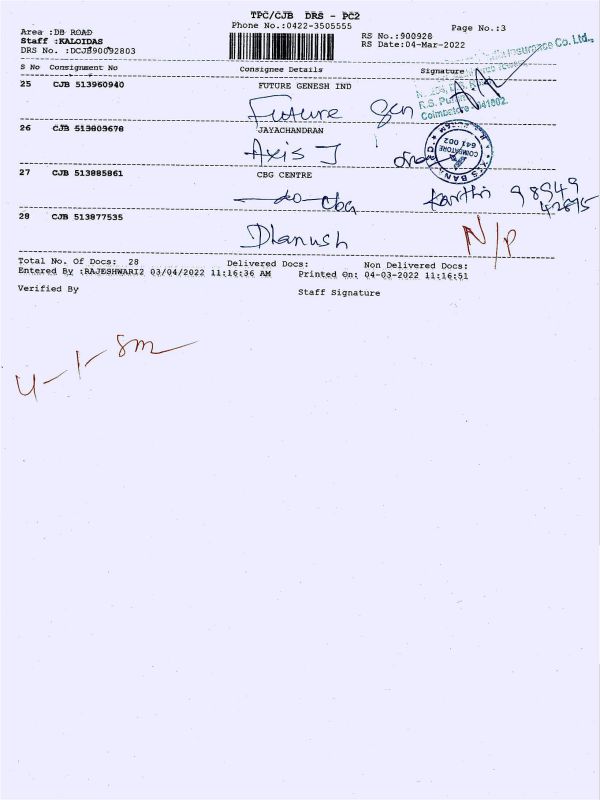 TPC/CJB DRS - PC2
Phone No.:0422-3505555
Page No.:3
Area :DB ROAD
RS No.:900928
Staff :KALOIDAS
RS Date:04-Mar-2022
DRS No. :DCJB90092803
S No Consignment No Consignee Details Signature
25 CJB 513960940 FUTURE GENESH IND
Future Gen
R.S. Puram
Coimbatore - 641002.
Insurance Co. Ltd.,
26 CJB 513803678 JAYACHANDRAN
Axis J
COIMBATORE
641 002
27 CJB 513885861 CBG CENTRE
-do- cbg Karthi 98949
42695
28 CJB 513877535
Dhanush N/P
Total No. Of Docs: 28 Delivered Docs: Non Delivered Docs:
Entered By :RAJESHWARI2 03/04/2022 11:16:36 AM Printed On: 04-03-2022 11:16:51
Verified By Staff Signature
4-1-8m